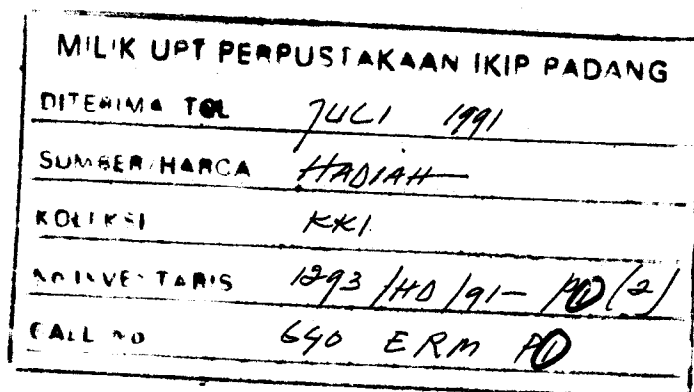 MILIK UPT PERPUSTAKAAN IKIP PADANG
DITERIMA TGL JULI 1991
SUMBER/HARGA HADIAH
KOLEKSI KKI
NO INVENTARIS 1293/HD/91-
CALL NO 640 ERM